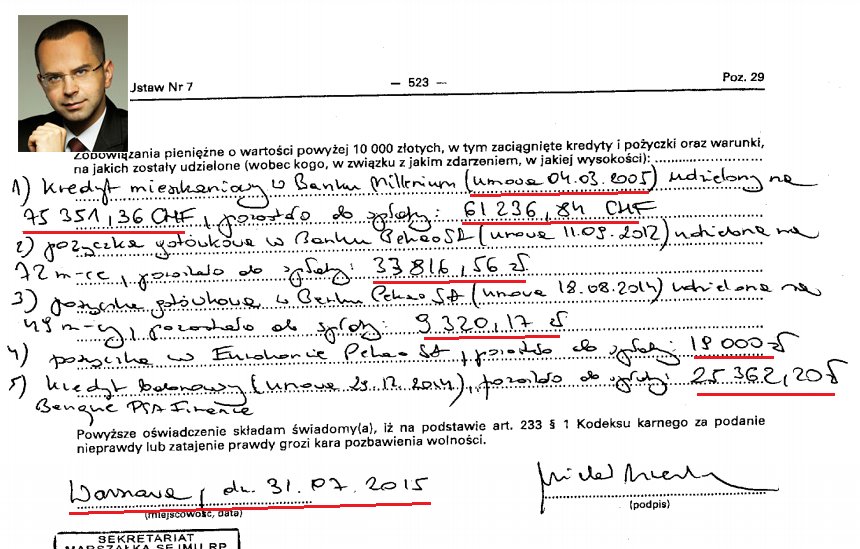 Ustaw Nr 7 — 523 — Poz. 29
Zobowiązania pieniężne o wartości powyżej 10 000 złotych, w tym zaciągnięte kredyty i pożyczki oraz warunki,
na jakich zostały udzielone (wobec kogo, w związku z jakim zdarzeniem, w jakiej wysokości):
1) kredyt mieszkaniowy w Banku Millenium (umowa 04.03.2005) udzielony na
75 351,36 CHF, pozostało do spłaty: 61 236,84 CHF
2) pożyczka gotówkowa w Banku Pekao SA (umowa 11.09.2012) udzielona na
72 m-ce, pozostało do spłaty: 33 816,56 zł
3) pożyczka gotówkowa w Banku Pekao SA (umowa 18.08.2014) udzielona na
49 m-cy, pozostało do spłaty: 9 320,17 zł
4) pożyczka w Eurokoncie Pekao SA, pozostało do spłaty: 19 000 zł
5) kredyt balonowy (umowa 29.12.2014), pozostało do spłaty: 25 362,20 zł
Banque PSA Finance
Powyższe oświadczenie składam świadomy(a), iż na podstawie art. 233 § 1 Kodeksu karnego za podanie
nieprawdy lub zatajenie prawdy grozi kara pozbawienia wolności.
Warszawa, dn. 31.07.2015
(miejscowość, data) (podpis)
SEKRETARIAT
MARSZAŁKA SEJMU RP